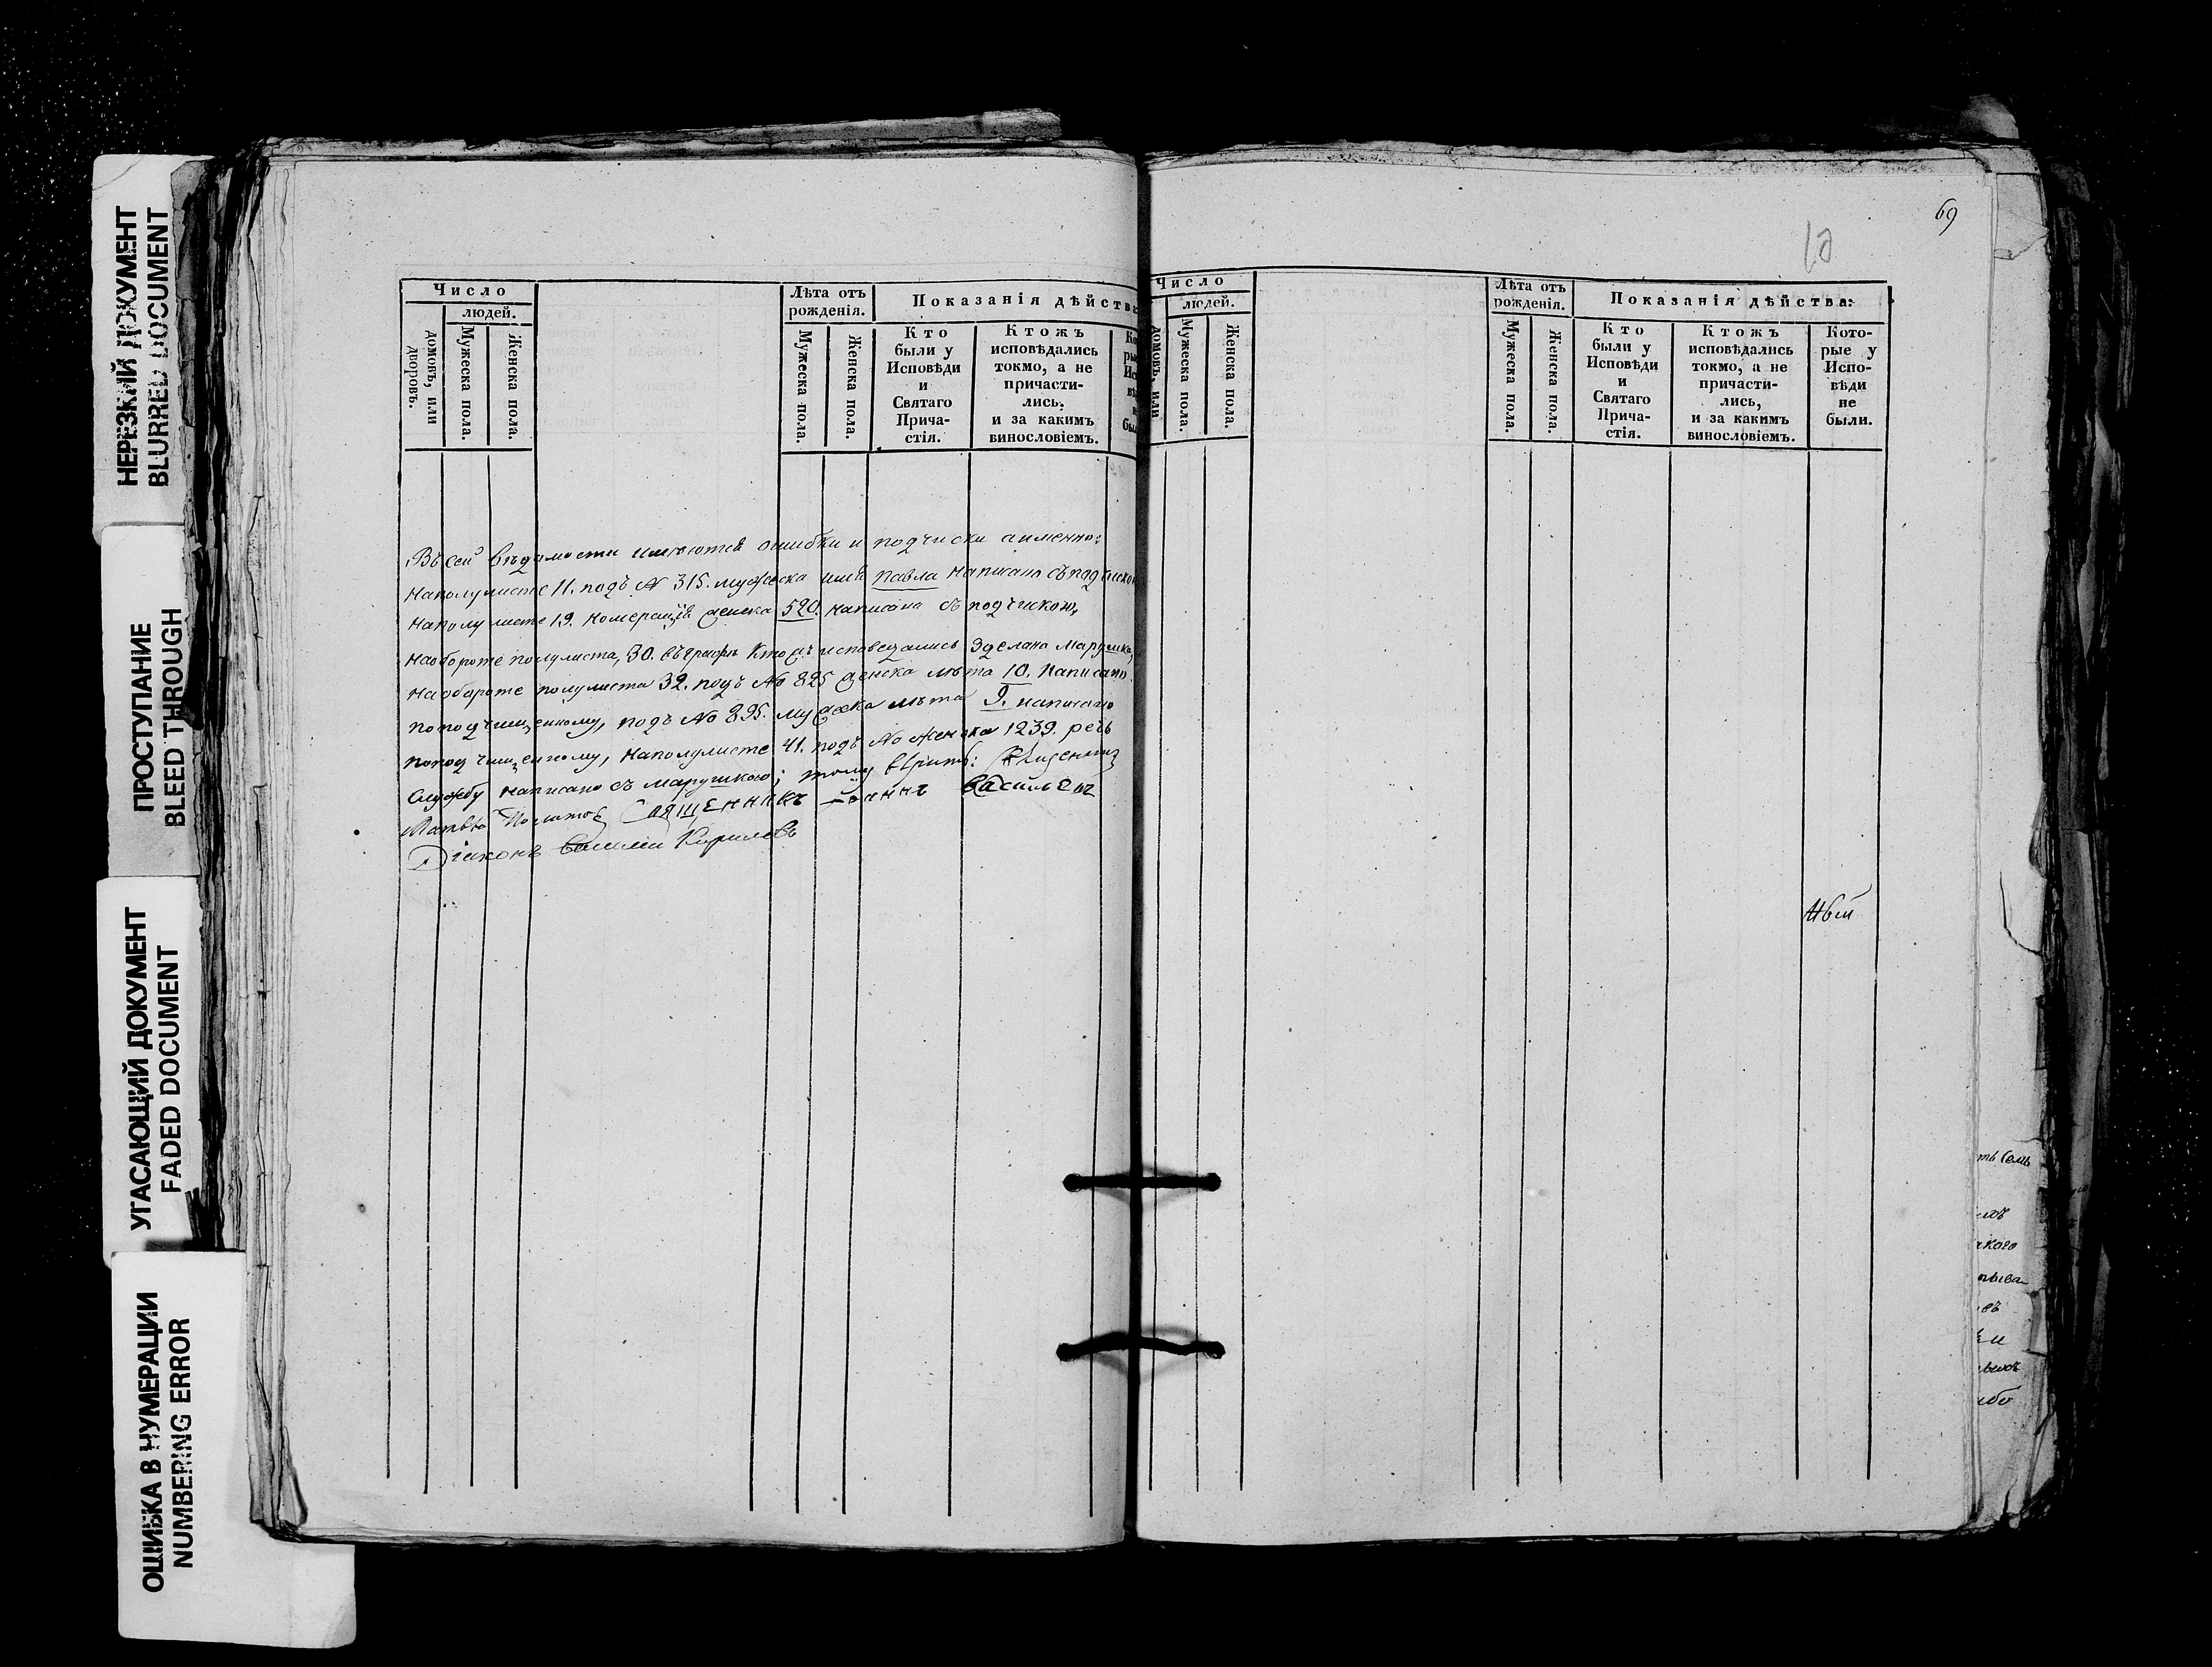 НЕРЕЗКИЙ ДОКУМЕНТ
BLURRED DOCUMENT
ПРОСТУПАНИЕ
BLEED THROUGH
УГАСАЮЩИЙ ДОКУМЕНТ
FADED DOCUMENT
ОШИБКА В НУМЕРАЦИИ
NUMBERING ERROR
Число
людей.
домовъ, или дворовъ.
Мужеска пола.
Женска пола.
Лѣта отъ рожденія.
Мужеска пола.
Женска пола.
Показанія дѣйства:
Кто
были у
Исповѣди
и
Святаго
Прича-
стія.
Ктожъ
исповѣдались
токмо, а не
причасти-
лись,
и за какимъ
винословіемъ.
Въ сей вѣдомости имѣются ошибки и подчиски аименно:
Наполулисте 11. подъ № 315. мужеска имя павла написано съ
Наполулисте 19. номерація женска 520. написана съ подчискою,
Наобороте полулиста, 30. въ графѣ Ктожъ исповедались зделана марушка,
Наобороте полулиста 32. подъ № 825 женска лѣта 10. написано
поподчищенному, подъ № 895. мужеска лѣта 9. написано
поподчищенному, Наполулисте 41. подъ № женска 1239. речь
службу написано съ марушкою; тому вѣрить:
Священникъ Іоаннъ Васильевъ
Діаконъ Василій Кириловъ
69
Число
людей.
домовъ, или
Мужеска пола.
Женска пола.
Лѣта отъ
рожденія.
Мужеска пола.
Женска пола.
Показанія дѣйства:
Кто
были у
Исповѣди
и
Святаго
Прича-
стія.
Ктожъ
исповѣдались
токмо, а не
причасти-
лись,
и за какимъ
винословіемъ.
Кото-
рые у
Испо-
вѣди
не
были.